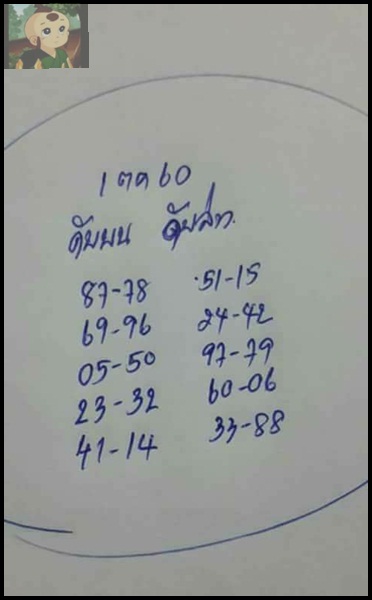 1 ตค 60
ดับบน ดับล่าง
87-78 51-15
69-96 24-42
05-50 97-79
23-32 60-06
41-14 33-88